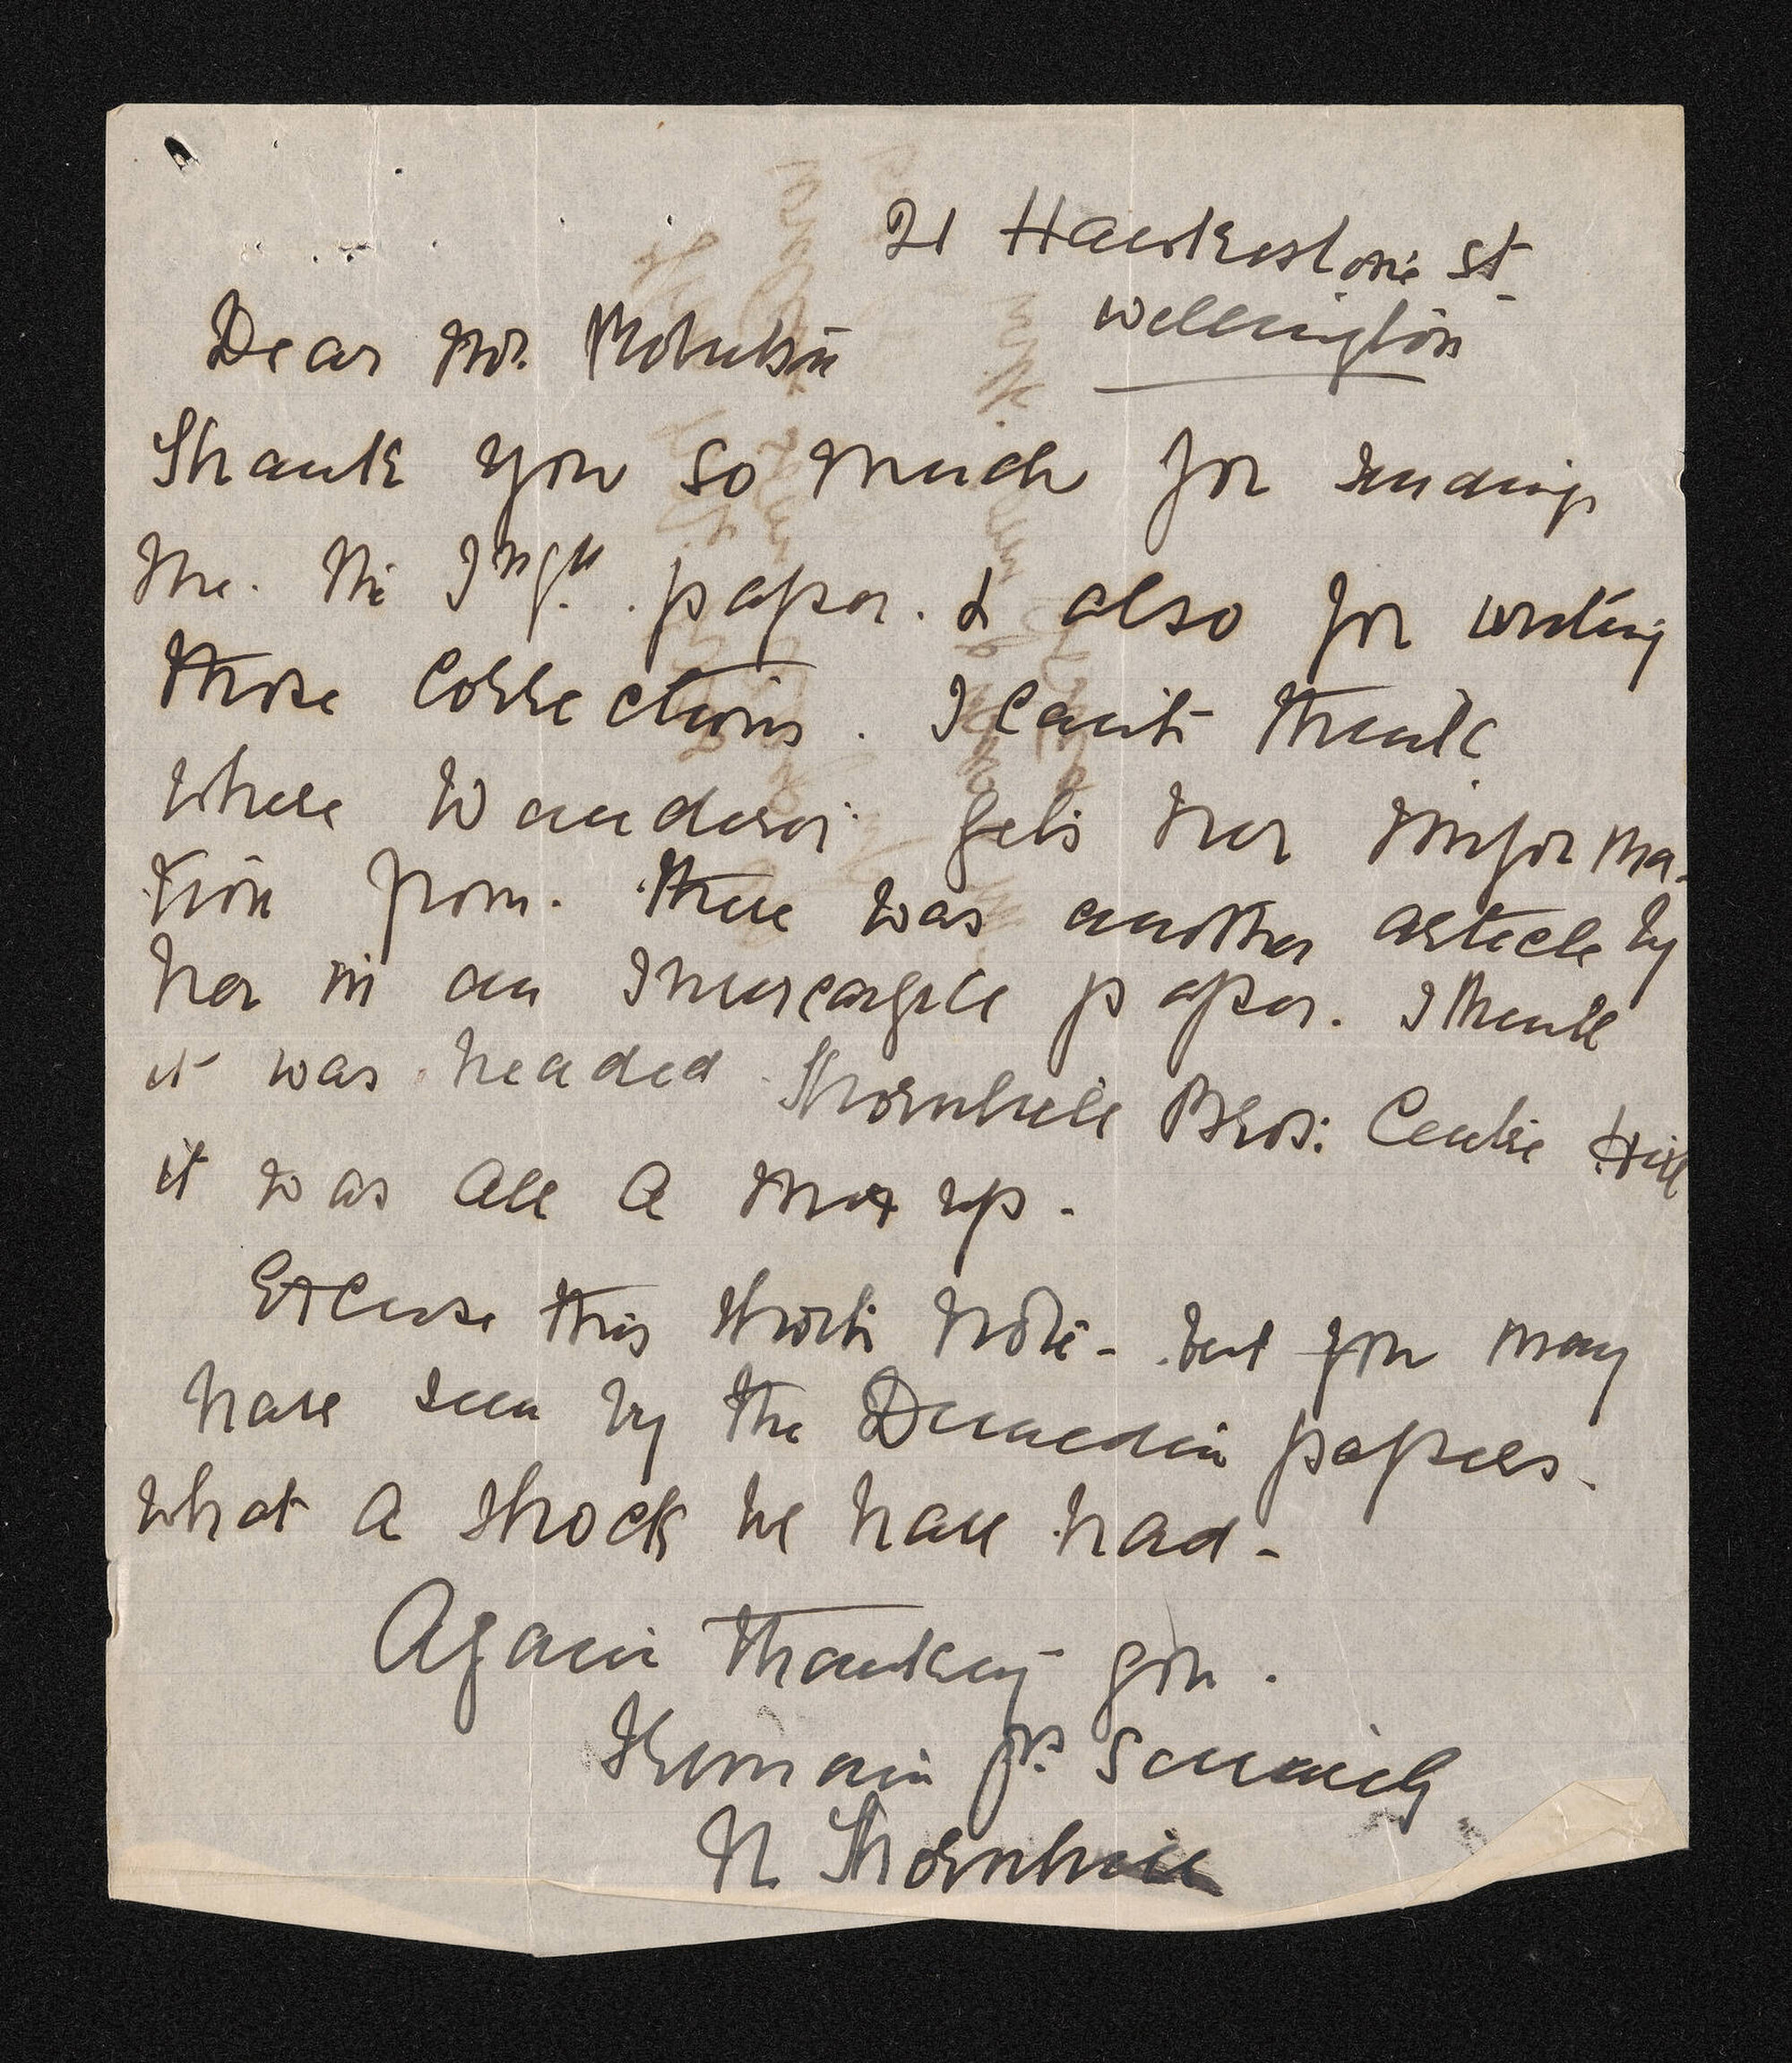 21 Hawkestone St
Wellington
Dear Mr.
Thank you so much for sending
me. the Ingll. paper. & also for writing
those corrections. I can't think
where Wanderer gets her informa-
tion from. there was another article by
her in an Invercargill paper. I think
it was headed Thornhill Bros: Centre Hill
it was all a mix up.
Excuse this short note - but you may
have seen by the Dunedin papers.
what a shock we have had -
Again thanking you.
I remain yrs Sincerely
N Thornhill